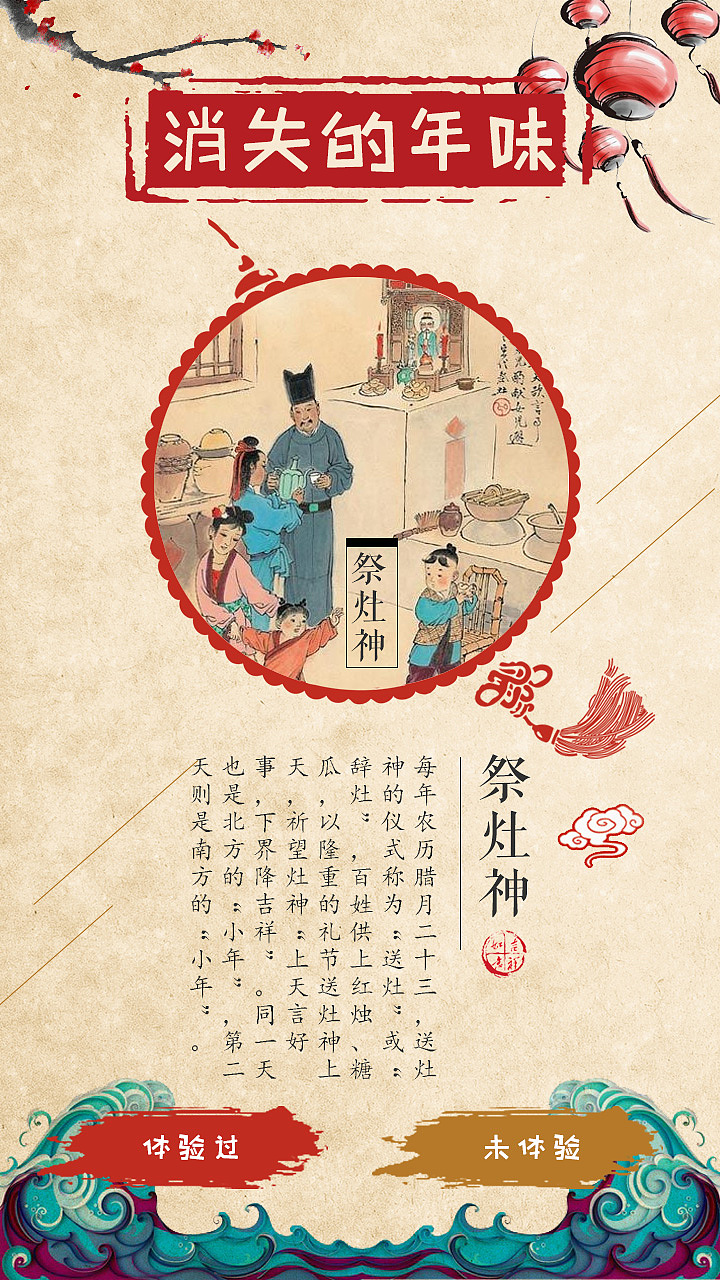 消失的年味
祭灶神
祭灶神
吉祥
如意
每年农历腊月二十三，送灶
神的仪式称为“送灶”或“
辞灶”，百姓供上红烛、糖
瓜，以隆重的礼节送灶神上
天，祈望灶神“上天言好
事，下界降吉祥”。同一天
也是北方的“小年”，第二
天则是南方的“小年”。
体验过
未体验